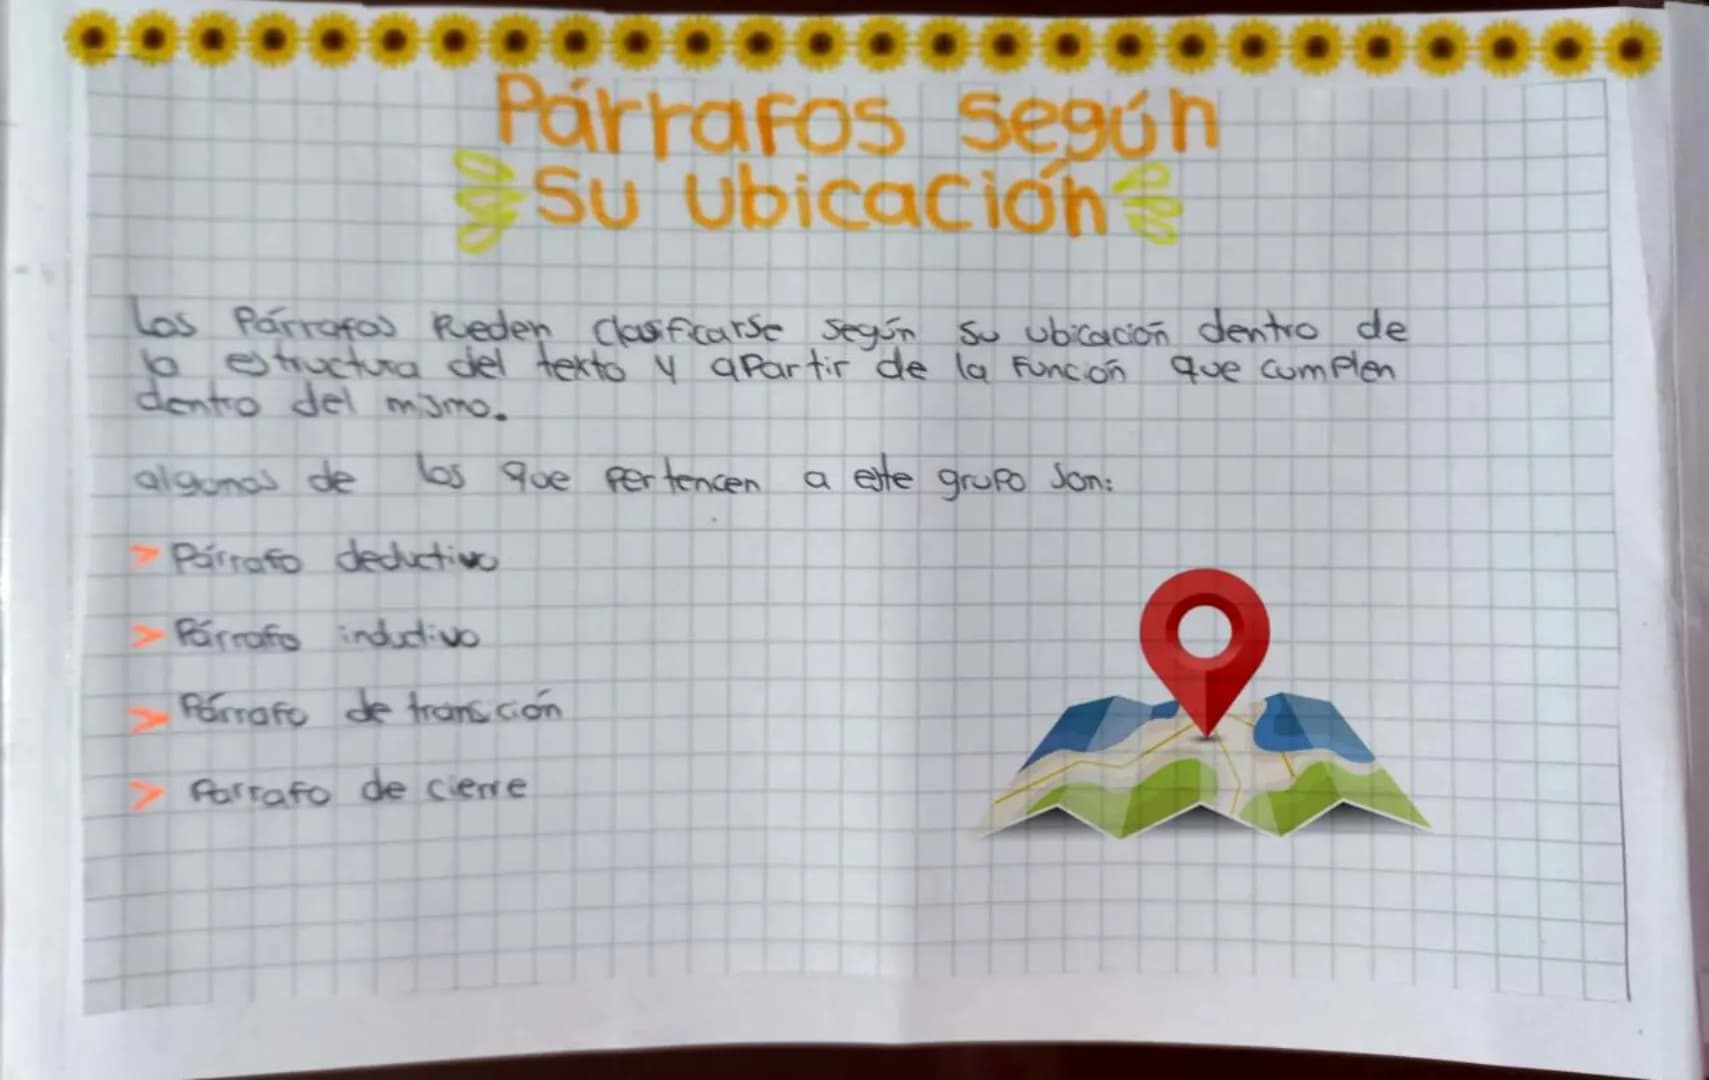 Párrafos según
su ubicación
Los Párrafos Pueden Clasificarse según su ubicación dentro de
la estructura del texto y apartir de la función que cumplen
dentro del mismo.
algunos de los que pertencen a este grupo son:
> Párrafo deductivo
> Párrafo inductivo
> Párrafo de transición
> Parrafo de cierre